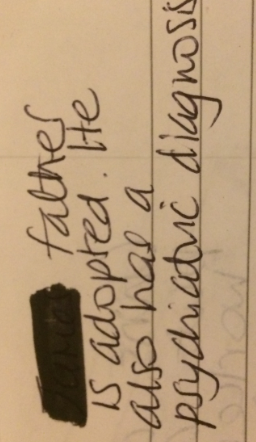 father
is adopted. He
also has a
psychiatric diagnosis